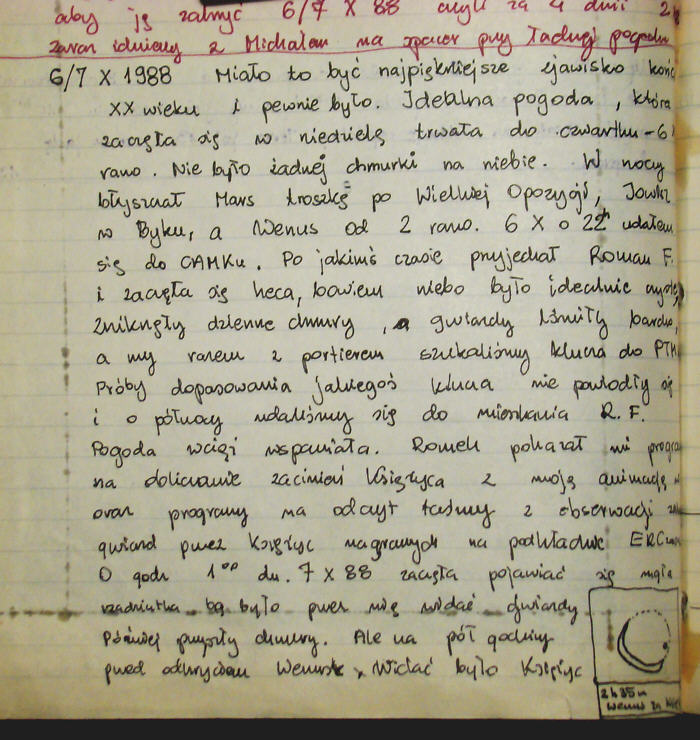 aby ją zaćmić 6/7 X 88 czyli za 4 dni
zaraz idziemy z Michałem na spacer przy ładnej pogodzie
6/7 X 1988 Miało to być najpiękniejsze zjawisko końc
XX wieku i pewnie było. Idealna pogoda, która
zaczęła się w niedzielę trwała do czwartku - 6
rano. Nie było żadnej chmurki na niebie. W nocy
błyszczał Mars troszkę po Wielkiej Opozycji, Jowisz
w Byku, a Wenus od 2 rano. 6 X o 22h udałem
się do CAMKu. Po jakimś czasie przyjechał Roman F.
i zaczęła się heca, bowiem niebo było idealnie czyste,
zniknęły dzienne chmury, a gwiazdy lśniły bardzo,
a my razem z portierem szukaliśmy klucza do PTMA
Próby dopasowania jakiegoś klucza nie powiodły się
i o północy udaliśmy się do mieszkania R. F.
Pogoda wciąż wspaniała. Romek pokazał mi progra
na obliczanie zaćmień Księżyca z moją animacją
oraz programy na odczyt taśmy z obserwacji
gwiazd przez Księżyc nagranych na podkładzie ERC
O godz 1⁰⁰ dn. 7 X 88 zaczęła pojawiać się mgła
rzadziutka bo było przez nią widać gwiazdy
Później przyszły chmury. Ale na pół godziny
przed odkryciem Wenus, widać było Księżyc
2h35m
Wenus za